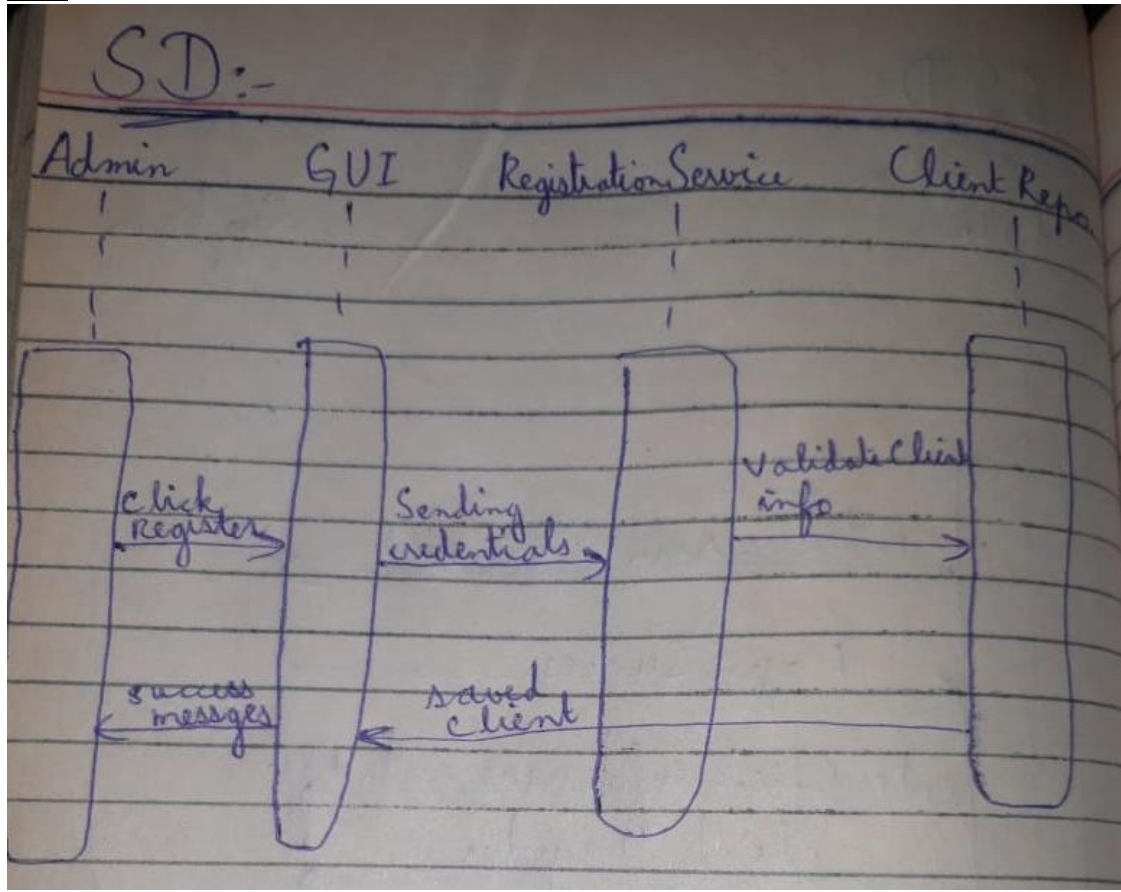 SD:-
Admin GUI Registration Service Client Repo
Click
Register
Sending
credentials
Validate Client
info
success
messges
saved
client